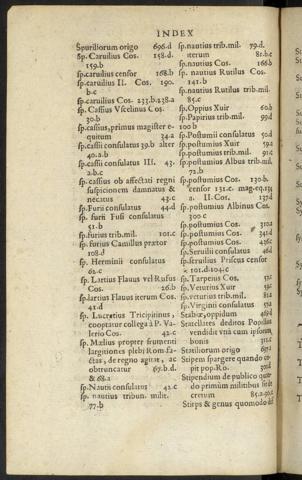 INDEX
Spurillorum origo 696.d
Sp. Caruilius Cos. 158.d.
159.b
sp.caruilius censor 168.b
sp.caruilius II. Cos. 190.
b.c
sp.caruilius Cos. 233.b.238.a
Sp. Cassius Vscelinus Cos.
30.b
sp.cassius, primus magister e-
quitum 34.a
sp.cassii consulatus 39.b alter
40.a.b
sp.cassii consulatus III. 43.
a.b.c
sp.cassius ob affectati regni
suspicionem damnatus &
necatus 43.c
sp.Furii consulatus 44.d
sp. furii Fusi consulatus
51.b
sp.furius trib.mil. 101.c
sp. furius Camillus prætor
108.d
sp. Herminii consulatus
62.c
sp. Lartius Flauus vel Rufus
Cos. 26.b
sp.lartius Flauus iterum Cos.
41.d
sp. Lucretius Tricipitinus,
cooptatur collega à P. Va-
lerio Cos. 42.c
sp. Mælius propter frumenti
largitiones plebi Rom. fa-
ctas, de regno agitat, ac
obtruncatur 67.b.d.
& 68.a
sp.Nautii consulatus 42.c
sp. nautius tribun. milit.
77.b
sp.nautius trib.mil. 79.d.
iterum 81.b.c
sp.nautius Cos. 166.b
sp. nautius Rutilus Cos.
141.b
sp.nautius Rutilus trib.mil.
85.c
sp.Oppius Xuir 60.b
sp.Papirius trib.mil. 99.d
100.b
sp.Postumii consulatus 50.d
sp.postumius Xuir 59.a
sp.postumius trib.mil. 91.c
sp.postumius Albus trib.mil.
72.b
sp.postumius Cos. 130.b.
censor 131.c. mag.eq.134
a. II. Cos. 137.d
sp.postumius Albinus Cos.
300.c
sp.postumius Cos. 310.a
sp.postumius Cos. 341.d
sp.postumius Cos. 436.c
sp.Seruilii consulatus 46.d
sp.seruilius Priscus censor
101.d.104.c
sp.Tarpeius Cos. 52.c
sp.Veturius Xuir 59.c
sp.veturius trib.mil. 82.a
sp.Virginii consulatus 52.a
Stabiæ, oppidum 469.d
Statellates deditos Popilius
vendidit vnà cum ipsorum
bonis 311.c
Statiliorum origo 697.a
Stipem spargere quando cœ-
pit pop.Ro. 301.d
Stipendium de publico quan-
do primùm militibus sit de
cretum 85.a.90.c
Stirps & genus quomodo dif